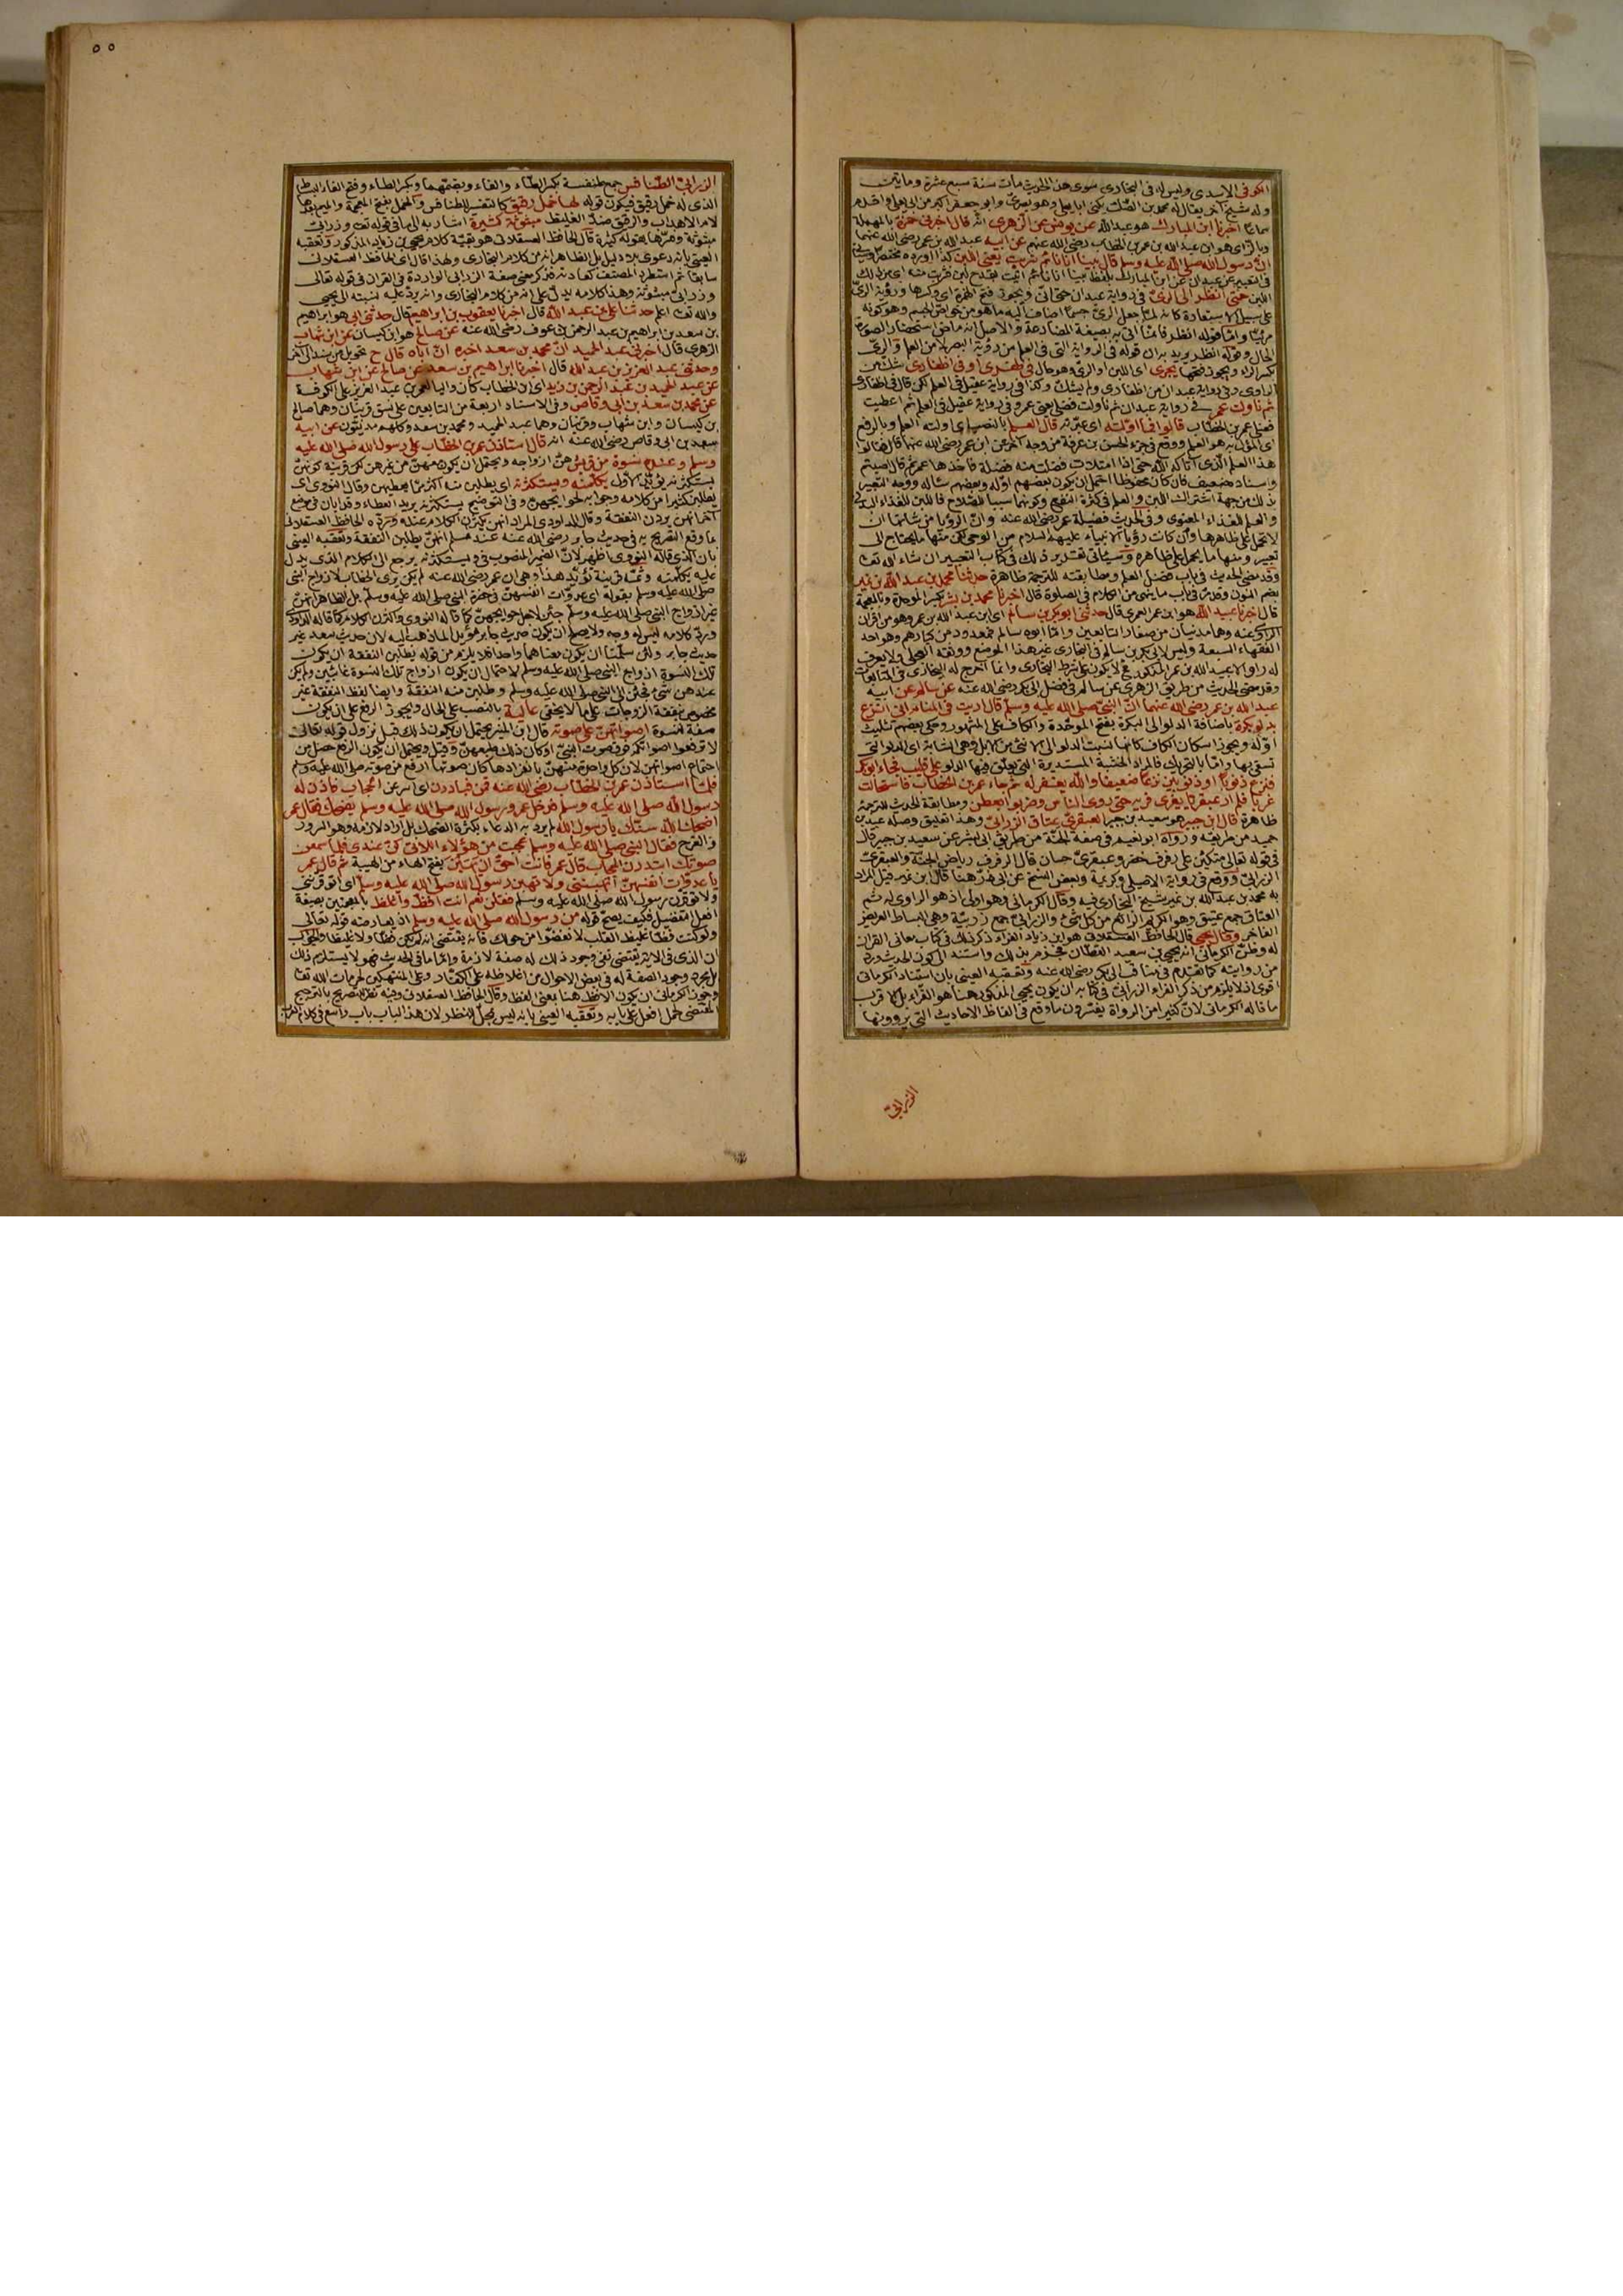 الكوفى الاسدى وليس له فى البخارى سوى هذا الحديث مات سنة سبع عشرة ومايتين
وله شيخ آخر يقال له محمد بن الصلت يكنى ابا يعلى وهو بصرى وابو جعفر اكبر من ابى يعلى واقدم
سماعا اخبرنا ابن المبارك هو عبد الله عن يونس عن الزهرى انه قال اخبرنى حمزة بالمهملة
وبالزاى هو ابن عبد الله بن عمر بن الخطاب رضى الله عنهم عن ابيه عبد الله بن عمر رضى الله عنهما
انّ رسول الله صلى الله عليه وسلم قال بينا انا نائم شربت يعنى اللبن كذا اورده مختصرا
فى التعبير عن عبدان عن ابن المبارك بلفظ بينا انا نائم اتيت بقدح لبن فشربت منه اى من ذلك
اللبن حتى انظر الى الرىّ فى رواية عبدان حتى انى ويجوز فتح الهمزة اى وكسرها ورؤية الرىّ
على سبيل الاستعارة كانه لما جعل الرىّ جسما اضاف اليه ما هو من خواص الجسم وهو كونه
مرئيّا وامّا قوله انظر فانما اتى به بصيغة المضارعة والاصل انه ماض استحضارا لصورة
الحال وقوله انظر يريد به ان قوله فى الرواية التى فى العلم من رؤية البصر لا من العلم والرىّ
بكسر الراء ويجوز فتحها يجرى اى اللبن او الرىّ وهو حال فى ظفرى او فى اظفارى شك من
الراوى وفى رواية عبدان من اظفارى ولم يشك وكذا فى رواية عقيل فى العلم لكن قال فى اظفارى
ثم ناولت عمر فى رواية عبدان ثم ناولت فضلى يعنى عمر وفى رواية عقيل فى العلم ثم اعطيت
فضلى عمر بن الخطاب قالوا فما اوّلته اى عبّرته قال العلم بالنصب اى اولته العلم وبالرفع
اى المؤول به هو العلم ووقع فى جزء الحسن بن عرفة من وجه آخر عن ابن عمر رضى الله عنهما قال فقالوا
هذا العلم الذى آتاكه الله حتى اذا امتلات فضلت منه فضلة فاخذها عمر قال اصبتم
واسناده ضعيف فان كان محفوظا احتمل ان يكون بعضهم اوّله وبعضهم ساله ووجه التعبير
بذلك من جهة اشتراك اللبن والعلم فى كثرة النفع وكونهما سببا للصلاح فاللبن للغذاء البدنى
والعلم للغذاء المعنوى وفى الحديث فضيلة عمر رضى الله عنه وانّ الرؤيا من شانها ان
لا تحمل على ظاهرها وان كانت رؤيا الانبياء عليهم السلام من الوحى لكن منها ما يحتاج الى
تعبير ومنها ما يحمل على ظاهره وسياتى تقدير ذلك فى كتاب التعبير ان شاء الله تعا
وقد مضى الحديث فى باب فضل العلم ومطابقته للترجمة ظاهرة حدثنا محمد بن عبد الله بن نمير
بضم النون وقد مرّ فى باب ما ينهى من الكلام فى الصلوة قال اخبرنا محمد بن بشر بكسر الموحدة وبالمعجمة
قال اخبرنا عبيد الله هو ابن عمر العمرى قال حدثنى ابو بكر بن سالم اى ابن عبد الله بن عمر وهو من اقران
الراوى عنه وهما مدنيان من صغار التابعين وامّا ابوه سالم فمعدود من كبارهم وهو احد
الفقهاء السبعة وليس لابى بكر بن سالم فى البخارى غير هذا الموضع ووثقه العجلى ولا يعرف
له راو الا عبيد الله بن عمر المذكور وانما اخرج له البخارى فى المتابعات
وقد مضى الحديث من طريق الزهرى عن سالم فى فضل ابى بكر رضى الله عنه عن سالم عن ابيه
عبد الله بن عمر رضى الله عنهما انّ النبى صلى الله عليه وسلم قال اريت فى المنام انى انزع
بدلو بكرة باضافة الدلو الى البكرة بفتح الموحّدة والكاف على المشهور وحكى بعضهم تثليث
اوّله ويجوز اسكان الكاف كانها نسبت الدلو الى الانثى من الابل وهى الشابة اى الدلو التى
تسقى بها وامّا بالتحريك فالمراد الخشبة المستديرة التى يعلّق فيها الدلو على قليب فجاء ابو بكر
فنزع ذنوبا او ذنوبين نزعا ضعيفا والله يغفر له ثم جاء عمر بن الخطاب فاستحالت
غربا فلم ار عبقريا يفرى فريه حتى روى الناس وضربوا بعطن ومطابقة الحديث للترجمة
ظاهرة قال ابن جبير هو سعيد بن جبير العبقرىّ عتاق الزرابىّ وهذا تعليق وصله عبد بن
حميد من طريقه ورواه ابو نعيم فى صفة الجنّة من طريق ابى بشر عن سعيد بن جبير قال
فى قوله تعالى متكئين على رفرف خضر وعبقرىّ حسان قال الرفرف رياض الجنّة والعبقرىّ
الزرابىّ ووقع فى رواية الاصيلى وكريمة وبعض النسخ عن ابى ذرّ هنا قال ابن نمير قيل المراد
به محمد بن عبد الله بن نمير شيخ البخارى فيه وقال الكرمانى وهو اولى اذ هو الراوى له ثم
العتاق جمع عتيق وهو الكريم الرائع من كل شئ والزرابىّ جمع زربيّة وهى البساط العريض
الفاخر وقال يحيى قال الحافظ العسقلانى هو ابن زياد الفراء ذكر ذلك فى كتاب معانى القران
له وظنّ الكرمانى انه يحيى بن سعيد القطان فجزم بذلك واستند الى كون الحديث ورد
من روايته كما تقدم فى مناقب ابى بكر رضى الله عنه وتعقبه العينى بان استناد الكرمانى
اقوى اذ لا يلزم من ذكر الفراء الزرابىّ فى كتابه ان يكون يحيى المذكور هنا هو الفرّاء بل الاقرب
ما قاله الكرمانى لان كثيرا من الرواة يفسّرون ما وقع فى الفاظ الاحاديث التى يروونها
الزرابىّ
٥٥
الزرابىّ الطنافس جمع طنفسة بكسر الطاء والفاء وبضمّهما وبكسر الطاء وفتح الفاء البساط
الذى له خمل رقيق فيكون قوله لها خمل رقيق كالتفسير للطنافس والخمل بفتح المعجمة والميم بعدها
لام الاهداب والرقيق ضدّ الغليظ مبثوثة كثيرة اشار به الى ما فى قوله تعا وزرابىّ
مبثوثة وفسّرها بقوله كثيرة قال الحافظ العسقلانى هو بقيّة كلام يحيى بن زياد المذكور وتعقبه
العينى بانه دعوى بلا دليل بل الظاهر انه من كلام البخارى ولهذا قال اى الحافظ العسقلانى
سابقا ثم استطرد المصنف كعادته فذكر معنى صفة الزرابى الواردة فى القران فى قوله تعالى
وزرابىّ مبثوثة وهذا كلامه يدلّ على انه من كلام البخارى وانه يردّ عليه نسبته الى يحيى
والله تعا اعلم حدثنا على بن عبد الله قال اخبرنا يعقوب بن ابراهيم قال حدثنى ابى هو ابراهيم
بن سعد بن ابراهيم بن عبد الرحمن بن عوف رضى الله عنه عن صالح هو ابن كيسان عن ابن شهاب
الزهرى قال اخبرنى عبد الحميد انّ محمد بن سعد اخبره انّ اباه قال ح تحويل من سند الى آخر
وحدثنى عبد العزيز بن عبد الله قال اخبرنا ابراهيم بن سعد عن صالح عن ابن شهاب
عن عبد الحميد بن عبد الرحمن بن زيد اى ابن الخطاب كان واليا لعمر بن عبد العزيز على الكوفة
عن محمد بن سعد بن ابى وقاص وفى الاسناد اربعة من التابعين على نسق قرينان وهما صالح
بن كيسان وابن شهاب وقرينان وهما عبد الحميد ومحمد بن سعد وكلهم مدنيّون عن ابيه
سعد بن ابى وقاص رضى الله عنه انه قال استاذن عمر بن الخطّاب على رسول الله صلى الله عليه
وسلم وعنده نسوة من قريش هنّ ازواجه ويحتمل ان يكون معهنّ من غيرهن لكن قرينة كونهنّ
يستكثرنه يؤيّد الاوّل يكلمنه ويستكثرنه اى يطلبن منه اكثر ممّا يعطيهن وقال النووى اى
يطلبن كثيرا من كلامه وجوابه لحوايجهن وفى التوضيح يستكثرنه يريد العطاء وقد ابان فى موضع
آخر انهن يردن النفقة وقال الداودى المراد انهن يكثرن الكلام عنده وردّه الحافظ العسقلانى
بما وقع التصريح به فى حديث جابر رضى الله عنه عند مسلم انهنّ يطلبن النفقة وتعقبه العينى
بان الذى قاله النووى اظهر لانّ الضمير المنصوب فى ويستكثرنه يرجع الى الكلام الذى يدل
عليه يكلّمنه وثمّة قرينة تؤيّد هذا وهى ان عمر رضى الله عنه لم يكن يرى الخطاب لازواج النبى
صلى الله عليه وسلم بقوله اى عدوّات انفسهنّ فى حضرة النبى صلى الله عليه وسلّم بل الظاهر انهنّ
غير ازواج النبى صلى الله عليه وسلّم جئن لاجل حوايجهنّ كما قاله النووى واكثرن الكلام كما قاله الداودى
وردّ كلامه ليس له وجه ولا يصلح ان يكون حديث جابر مؤيدا لما ذهب اليه لان حديث سعد غير
حديث جابر ولئن سلّمنا ان يكون معناهما واحدا فلا يلزم من قوله يطلبن النفقة ان يكون
تلك النسوة ازواج النبى صلى الله عليه وسلم لاحتمال ان يكون ازواج تلك النسوة غائبين ولم يكن
عندهن شئ فجئن الى النبى صلى الله عليه وسلم وطلبن منه النفقة وايضا لفظ النفقة غير
مخصوص بنفقة الزوجات على ما لا يخفى عالية بالنصب على الحال ويجوز الرفع على ان يكون
صفة لنسوة اصواتهنّ على صوته قال ابن المنير يحتمل ان يكون ذلك قبل نزول قوله تعالى
لا ترفعوا اصواتكم فوق صوت النبىّ او كان ذلك طبعهنّ وقيل ويحتمل ان يكون الرفع حصل من
اجتماع اصواتهن لان كل واحدة منهنّ بانفرادها كان صوتها ارفع من صوته صلى الله عليه وسلم
فلمّا استاذن عمر بن الخطّاب رضى الله عنه قمن فبادرن اى اسرعن الحجاب فاذن له
رسول الله صلى الله عليه وسلم فدخل عمر ورسول الله صلى الله عليه وسلم يضحك فقال عمر
اضحك الله سنّك يا رسول الله لم يرد به الدعاء بكثرة الضحك بل اراد لازمه وهو السرور
والفرح فقال النبى صلى الله عليه وسلم عجبت من هؤلاء اللاتى كنّ عندى فلما سمعن
صوتك ابتدرن الحجاب قال عمر فانت احقّ ان يهبن بفتح الهاء من الهيبة ثم قال عمر
يا عدوّات انفسهنّ اتهبننى ولا تهبن رسول الله صلى الله عليه وسلم اى اتوقّرننى
ولا توقّرن رسول الله صلى الله عليه وسلم فقلن نعم انت افظّ واغلظ بالمعجمتين بصيغة
افعل التفضيل فكيف يصحّ قوله من رسول الله صلى الله عليه وسلم اذ يعارضه قوله تعالى
ولو كنت فظّا غليظ القلب لانفضّوا من حولك فانه يقتضى انه لم يكن فظّا ولا غليظا والجواب
ان الذى فى الاية يقتضى نفى وجود ذلك له صفة لازمة وامّا ما فى الحديث فهو لا يستلزم ذلك
بل مجرد وجود الصفة له فى بعض الاحوال من اغلاظه على الكفّار وعلى المنتهكين لحرمات الله تعا
وجوّز الكرمانى ان يكون الافظّ هنا بمعنى الفظ وقال الحافظ العسقلانى وفيه نظر للتصريح بالترجيح
المقتضى لحمل افعل على بابه وتعقبه العينى بانه ليس محلّ النظر لان هذا الباب باب واسع فى كلام العرب